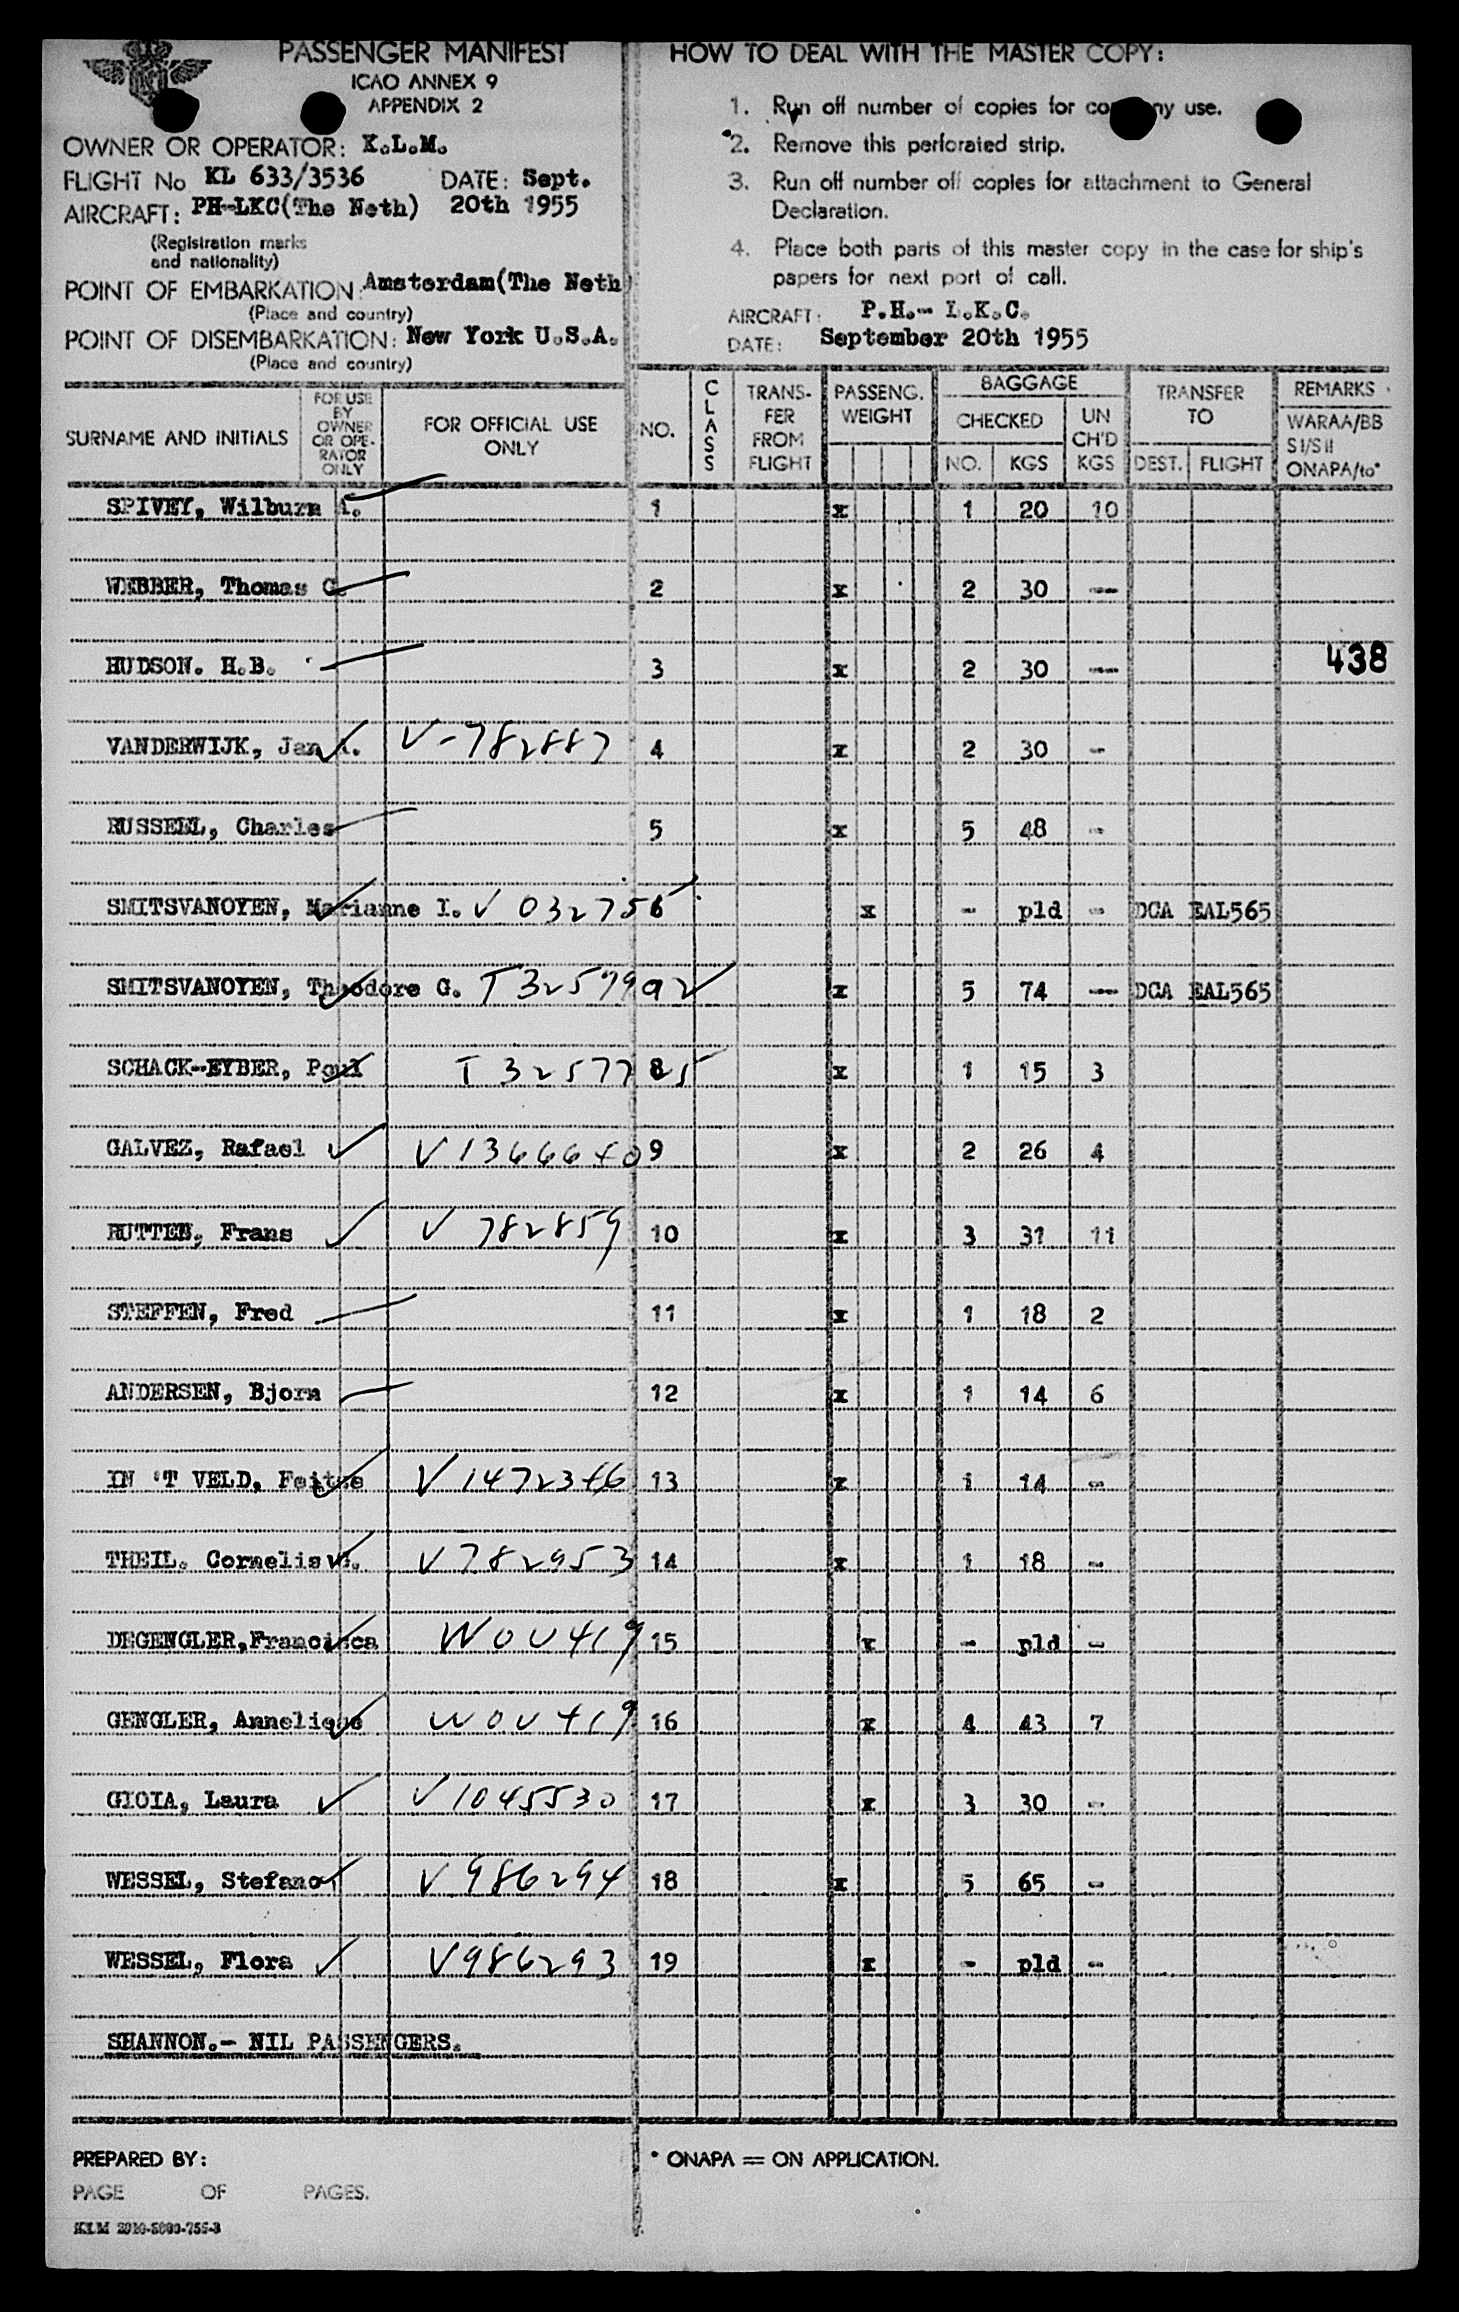 PASSENGER MANIFEST
ICAO ANNEX 9
APPENDIX 2
OWNER OR OPERATOR: K.L.M.
FLIGHT No KL 633/3536 DATE: Sept.
AIRCRAFT: PH-LKC(The Neth) 20th 1955
(Registration marks
and nationality)
POINT OF EMBARKATION: Amsterdam(The Neth)
(Place and country)
POINT OF DISEMBARKATION: New York U.S.A.
(Place and country)
HOW TO DEAL WITH THE MASTER COPY:
1. Run off number of copies for company use.
2. Remove this perforated strip.
3. Run off number of copies for attachment to General
Declaration.
4. Place both parts of this master copy in the case for ship's
papers for next port of call.
AIRCRAFT: P.H.- L.K.C.
DATE: September 20th 1955
SURNAME AND INITIALS
FOR USE
BY
OWNER
OR OPE-
RATOR
ONLY
FOR OFFICIAL USE
ONLY
NO.
CLASS
TRANS-
FER
FROM
FLIGHT
PASSENG.
WEIGHT
BAGGAGE
CHECKED
NO. KGS
UN
CH'D
KGS
TRANSFER
TO
DEST. FLIGHT
REMARKS
WARAA/BB
SI/SII
ONAPA/to*
SPIVEY, Wilburn A. 1 x 1 20 10
WEBBER, Thomas G. 2 x 2 30 --
HUDSON. H.B. 3 x 2 30 -- 438
VANDERWIJK, Jan A. V-782887 4 x 2 30 -
RUSSELL, Charles 5 x 5 48 -
SMITSVANOYEN, Marianne I. V 032755 6 x - pld - DCA EAL565
SMITSVANOYEN, Theodore G. T3257992 x 5 74 -- DCA EAL565
SCHACK-EYBER, Poul T 3257725 8 x 1 15 3
GALVEZ, Rafael V1366640 9 x 2 26 4
RUTTEN, Frans V 782859 10 x 3 31 11
STEFFEN, Fred 11 x 1 18 2
ANDERSEN, Bjorn 12 x 1 14 6
IN 'T VELD, Feitse V1472346 13 x 1 14 -
THEIL. Cornelis V782953 14 x 1 18 -
DEGENGLER, Francisca W00419 15 x - pld -
GENGLER, Anneliese W00419 16 x 4 43 7
GIOIA, Laura V1045530 17 x 3 30 -
WESSEL, Stefano V986294 18 x 5 65 -
WESSEL, Flora V986293 19 x - pld -
SHANNON.- NIL PASSENGERS.
PREPARED BY:
PAGE OF PAGES.
* ONAPA = ON APPLICATION.